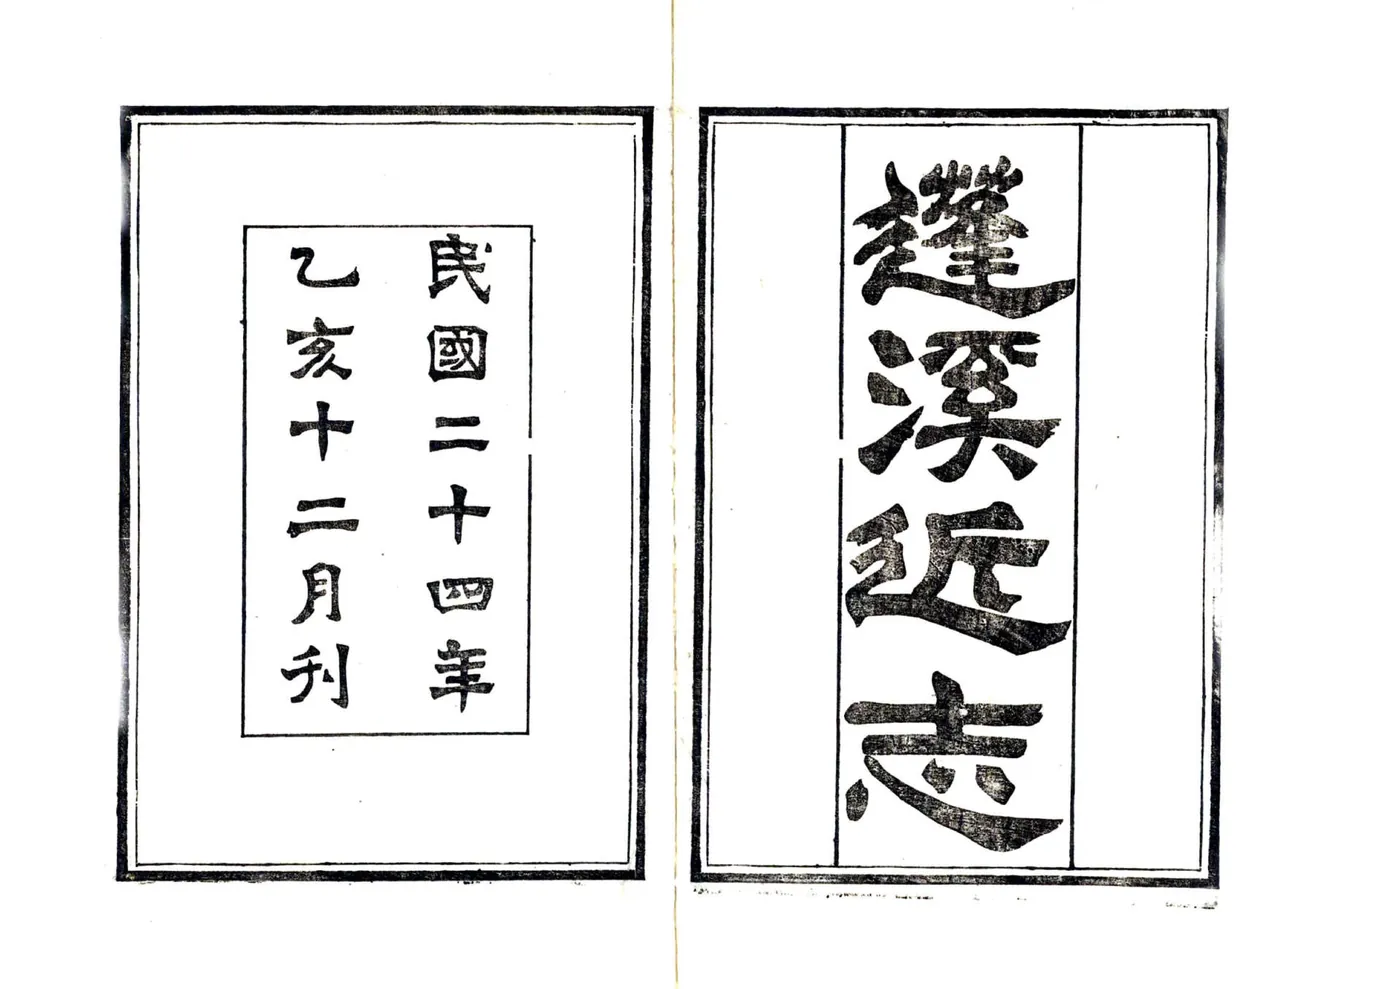 蓬溪近志
民國二十四年
乙亥十二月刊